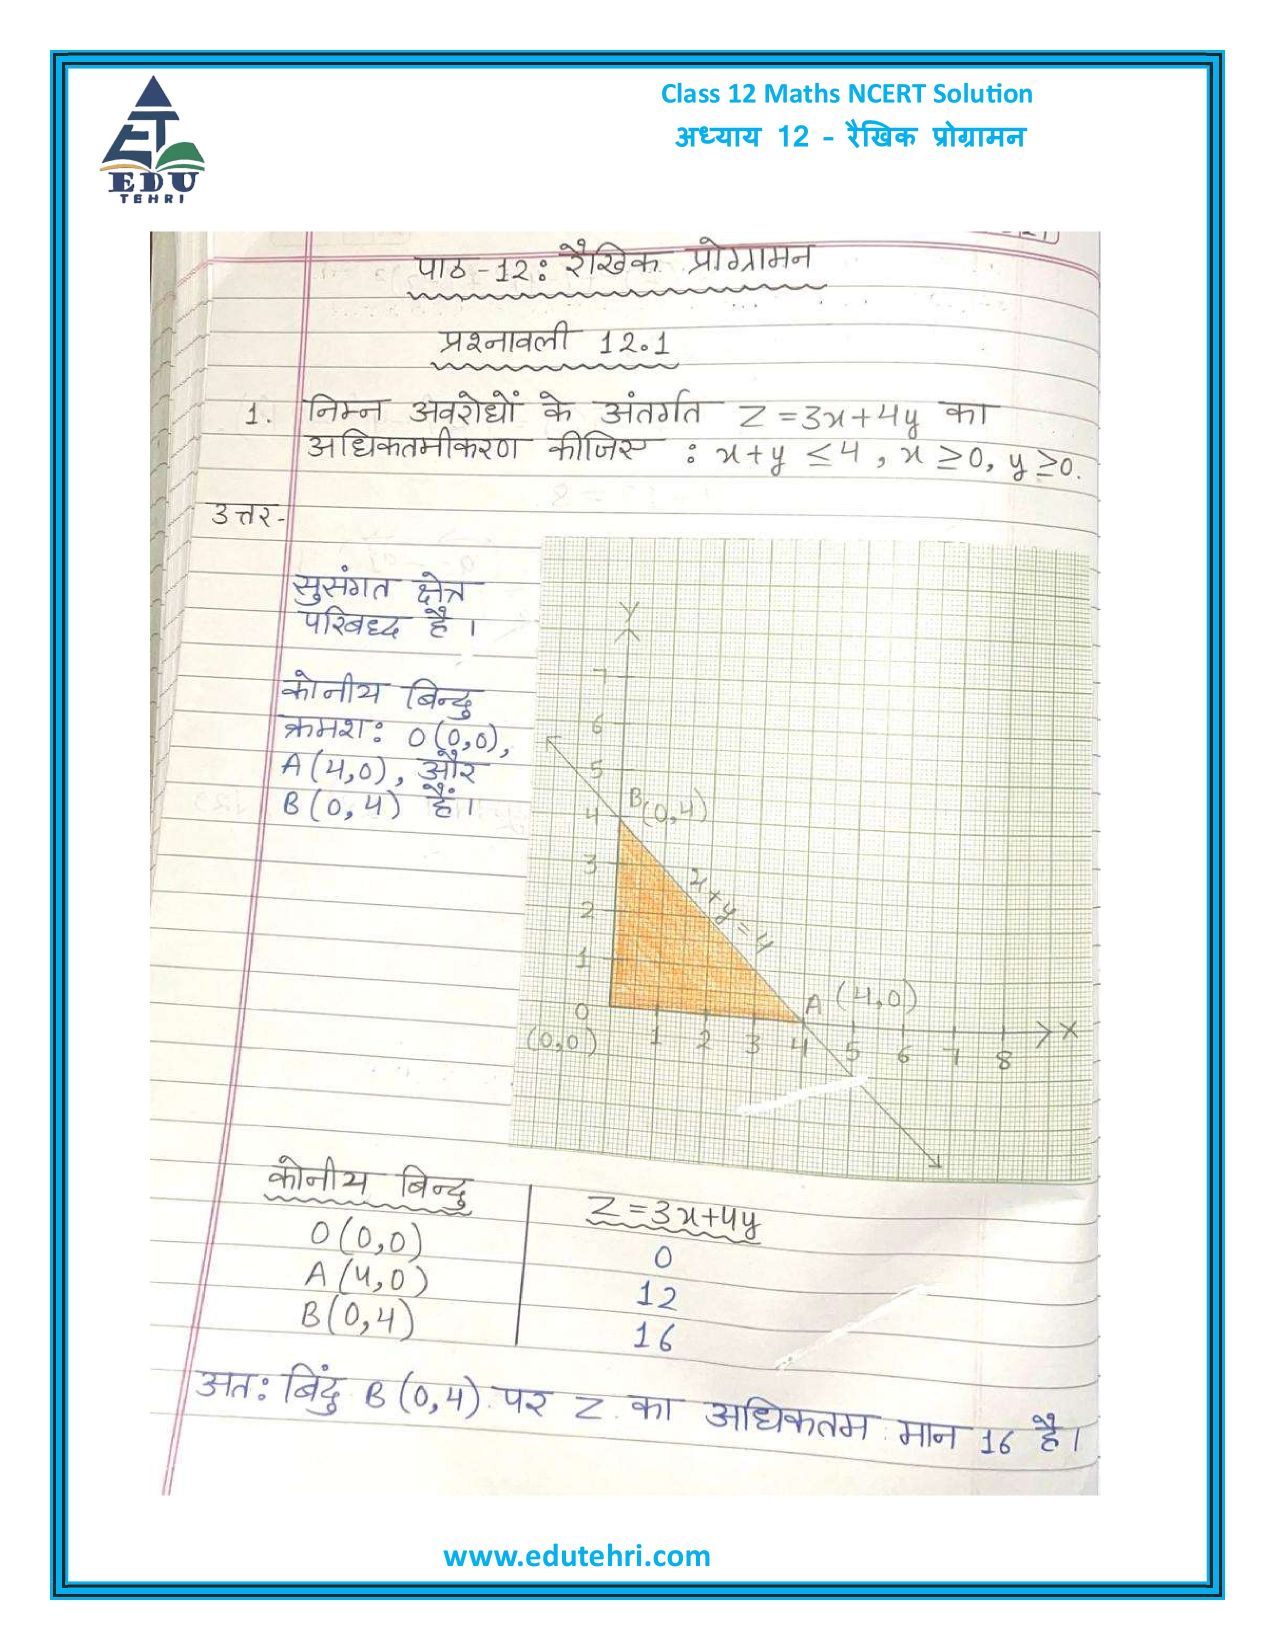 ET
EDU
TEHRI
Class 12 Maths NCERT Solution
अध्याय 12 - रैखिक प्रोग्रामन
पाठ -12: रैखिक प्रोग्रामन
प्रश्नावली 12.1
1. निम्न अवरोधों के अंतर्गत Z=3x+4y का
अधिकतमीकरण कीजिस : x+y ≤4, x ≥0, y ≥0.
उत्तर-
सुसंगत क्षेत्र
परिबध्द है।
कोनीय बिन्दु
क्रमशः O(0,0),
A(4,0), और
B(0,4) हैं।
Y
7
6
5
4
B(0,4)
3
x+y=4
2
1
A (4,0)
0
(0,0)
1 2 3 4 5 6 7 8 X
कोनीय बिन्दु Z=3x+4y
O(0,0) 0
A(4,0) 12
B(0,4) 16
अतः बिंदु B(0,4) पर Z का अधिकतम मान 16 है।
www.edutehri.com